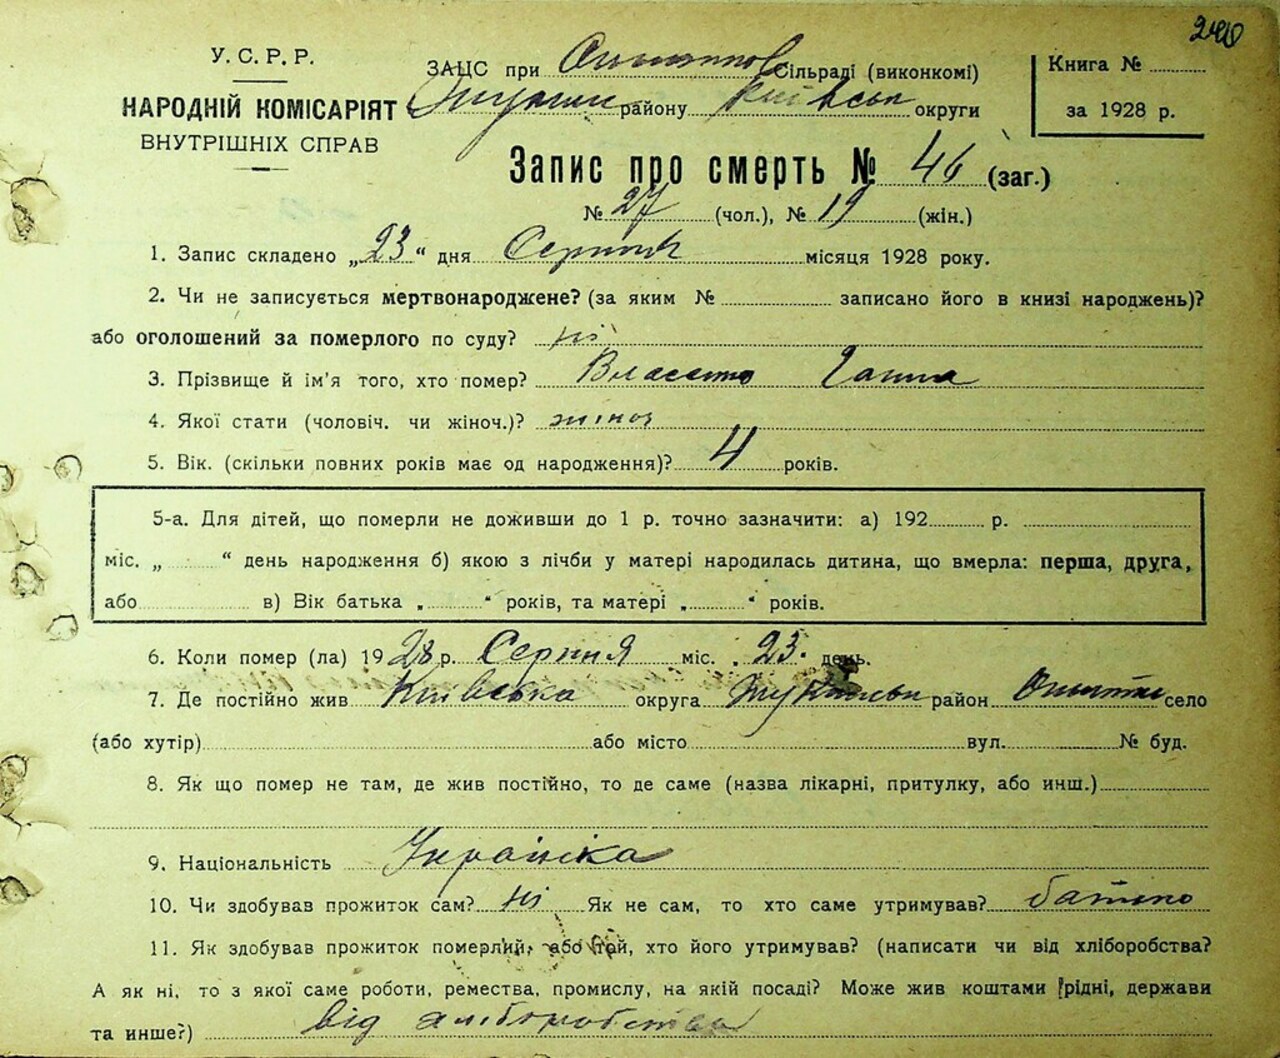 240
У. С. Р. Р.
НАРОДНІЙ КОМІСАРІЯТ
ВНУТРІШНІХ СПРАВ
ЗАЦС при Сільраді (виконкомі)
району Київськ округи
Книга №
за 1928 р.
Запис про смерть № 46 (заг.)
№ 27 (чол.), № 19 (жін.)
1. Запис складено „23“ дня Серпня місяця 1928 року.
2. Чи не записується мертвонароджене? (за яким № записано його в книзі народжень)?
або оголошений за померлого по суду? ні
3. Прізвище й ім'я того, хто помер? Ганна
4. Якої стати (чоловіч. чи жіноч.)? жіноч
5. Вік. (скільки повних років має од народження)? 4 років.
5-а. Для дітей, що померли не доживши до 1 р. точно зазначити: а) 192 р.
міс. „ “ день народження б) якою з лічби у матері народилась дитина, що вмерла: перша, друга,
або в) Вік батька „ “ років, та матері „ “ років.
6. Коли помер (ла) 1928 р. Серпня міс. 23. день.
7. Де постійно жив Київська округа район село
(або хутір) або місто вул. № буд.
8. Як що помер не там, де жив постійно, то де саме (назва лікарні, притулку, або инш.)
9. Національність Українка
10. Чи здобував прожиток сам? ні Як не сам, то хто саме утримував? батько
11. Як здобував прожиток померлий, або той, хто його утримував? (написати чи від хліборобства?
А як ні, то з якої саме роботи, ремества, промислу, на якій посаді? Може жив коштами рідні, держави
та инше?) від хліборобства